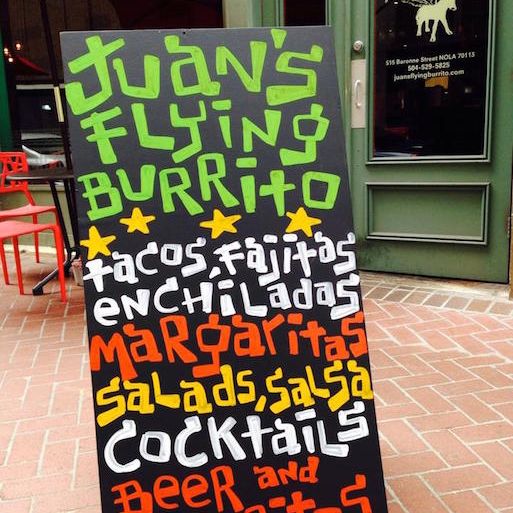 Juan's
Flying
Burrito
Tacos, Fajitas
Enchiladas
Margaritas
Salads, Salsa
Cocktails
Beer and
515 Baronne Street NOLA 70113
504-529-5825
juansflyingburrito.com